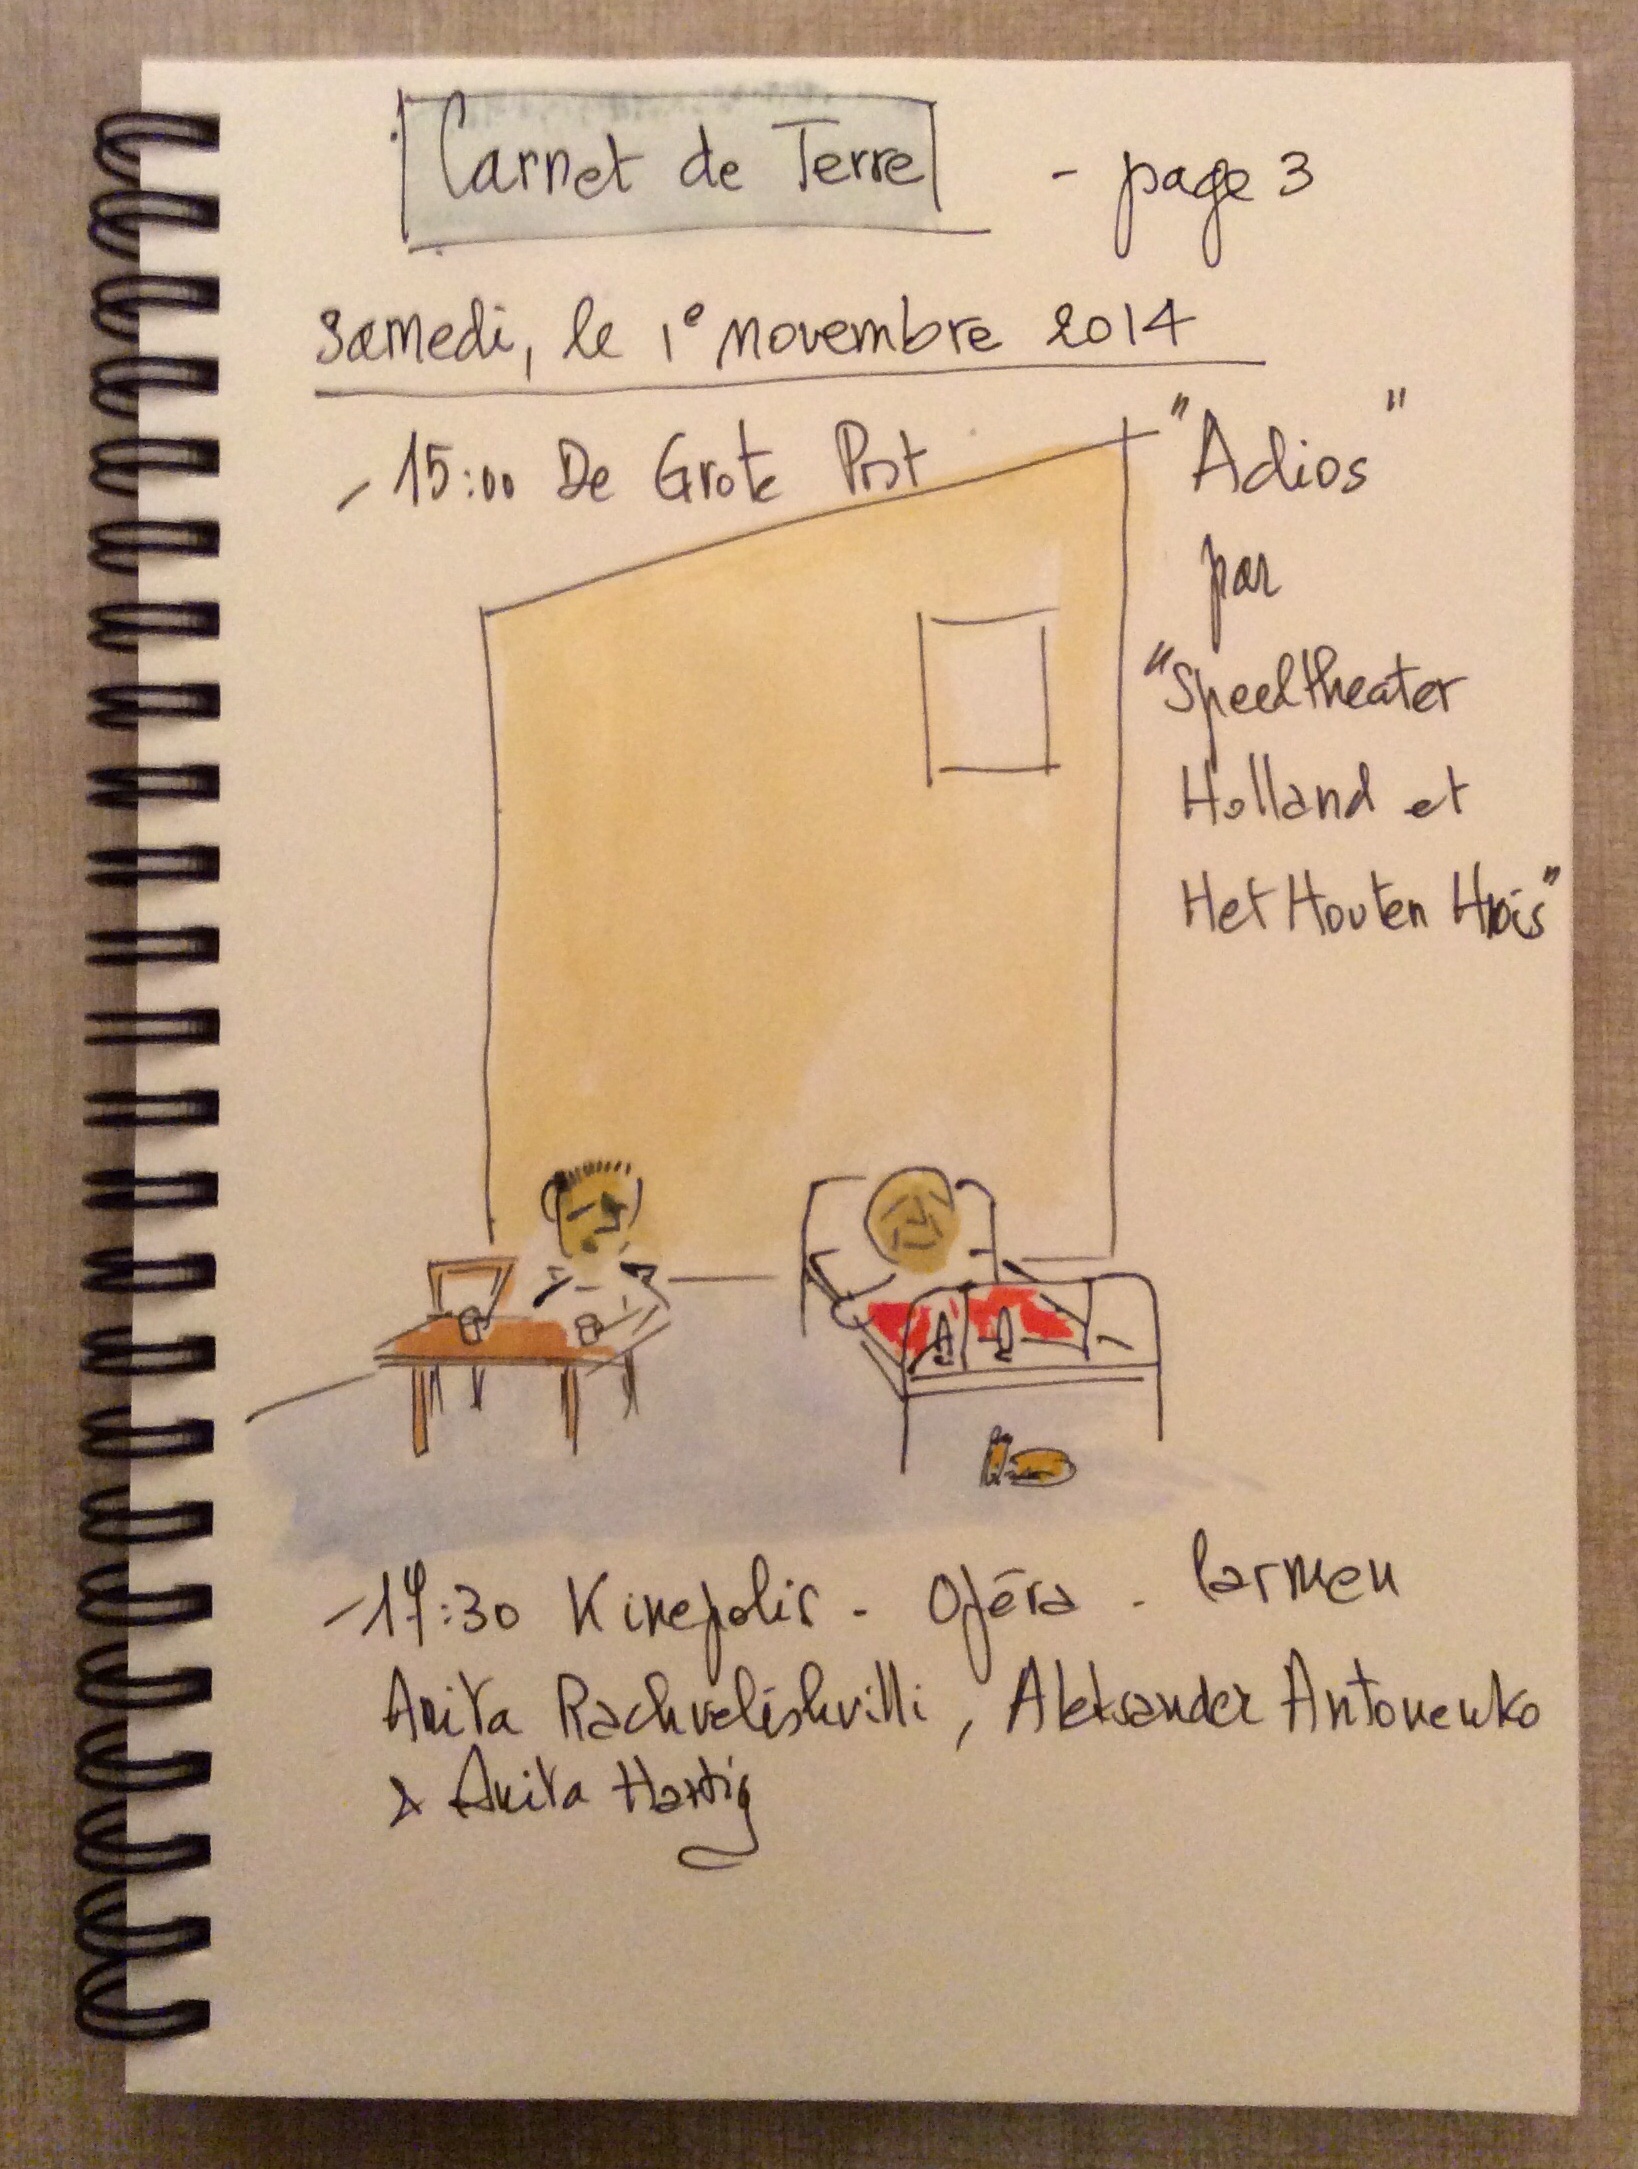 Carnet de Terre - page 3
Samedi, le 1e novembre 2014
- 15:00 De Grote Post "Adios"
par
"Speeltheater
Holland et
Het Houten Huis"
- 17:30 Kinepolis - Opéra - Carmen
Anita Rachvelishvilli, Aleksander Antonenko
& Anita Hartig